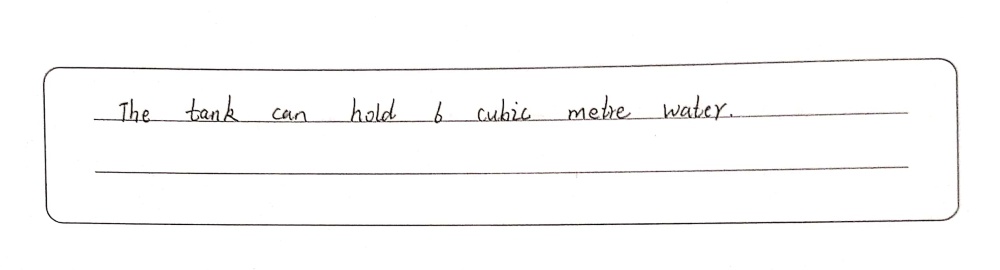 The tank can hold 6 cubic metre water.